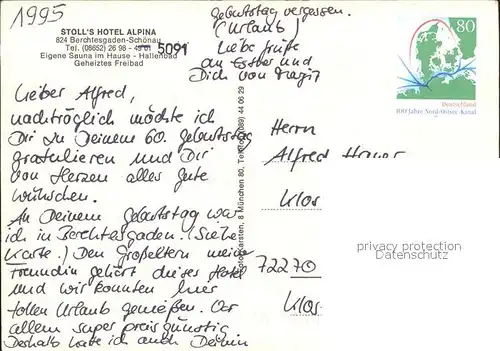 1995
STOLL'S HOTEL ALPINA
824 Berchtesgaden-Schönau
Tel. (08652) 26 98 - 5091
Eigene Sauna im Hause - Hallenbad
Geheiztes Freibad
Lieber Alfred,
nachträglich möchte ich
Dir zu Deinem 60. Geburtstag
gratulieren und Dir
von Herzen alles Gute
wünschen.
An Deinem Geburtstag war
ich in Berchtesgaden. (Siehe
Karte.) Den Großeltern meiner
Freundin gehört dieses Hotel
und wir konnten hier
tollen Urlaub genießen. Vor
allem super preisgünstig
Deshalb habe ich auch Deinen
Geburtstag vergessen.
(Urlaub)
Liebe Grüße
an Esther und
Dich von Margit
80
Deutschland
100 Jahre Nord-Ostsee-Kanal
Herrn
Alfred
Klos
72270
Klos
8 München 80, Telefon (089) 44 06 29
privacy protection
Datenschutz